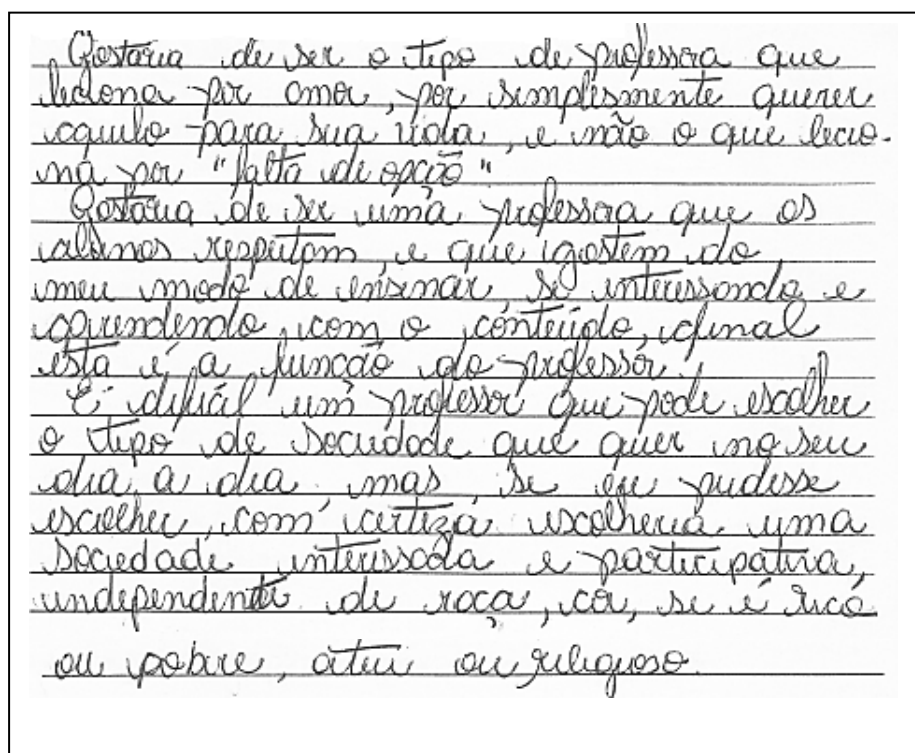 Gostaria de ser o tipo de professora que
leciona por amor, por simplesmente querer
aquilo para sua vida, e não o que lecio-
na por "falta de opção"
Gostaria de ser uma professora que os
alunos respeitam, e que gostem do
meu modo de ensinar, se interessando e
aprendendo com o conteúdo, afinal
esta é a função do professor.
É difícil um professor que pode escolher
o tipo de sociedade que quer no seu
dia a dia, mas se eu pudesse
escolher, com certeza escolheria uma
sociedade interessada e participativa,
independente de raça, cor, se é rico
ou pobre, ateu ou religioso.